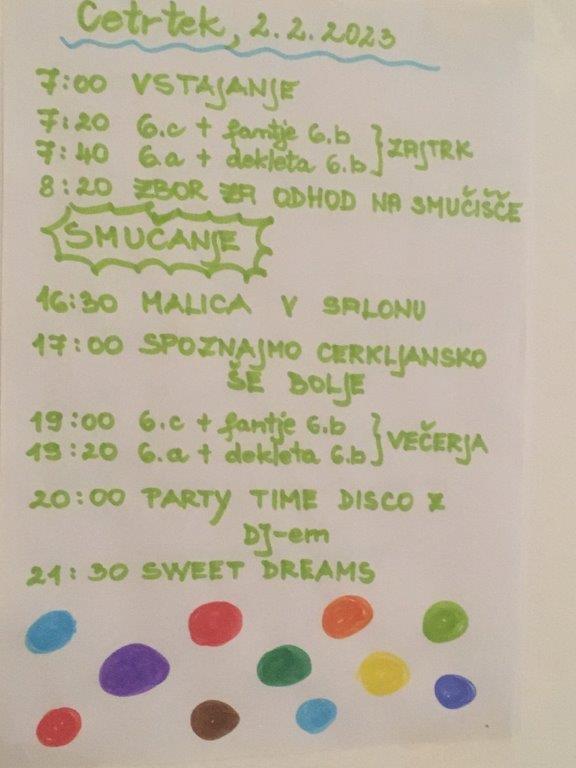 Četrtek, 2.2.2023
7:00 VSTAJANJE
7:20 6.c + fantje 6.b
7:40 6.a + dekleta 6.b } ZAJTRK
8:20 ZBOR ZA ODHOD NA SMUČIŠČE
SMUČANJE
16:30 MALICA V SALONU
17:00 SPOZNAJMO CERKLJANSKO
ŠE BOLJE
19:00 6.c + fantje 6.b
19:20 6.a + dekleta 6.b } VEČERJA
20:00 PARTY TIME DISCO Z
DJ-em
21:30 SWEET DREAMS